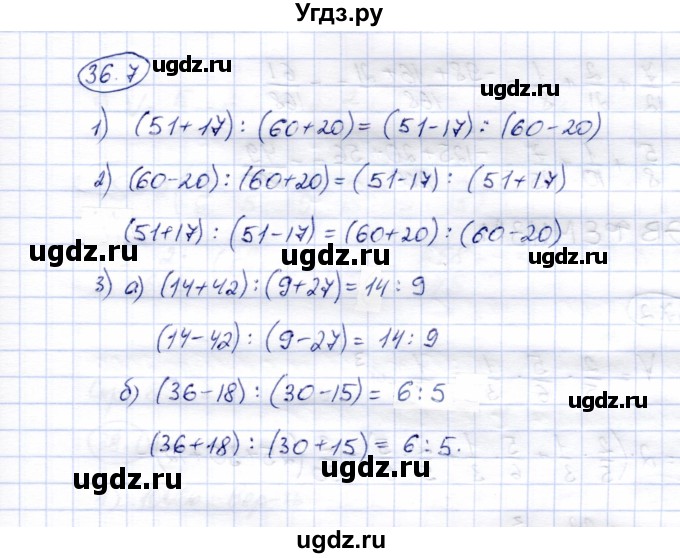 Угдз.ру
36.7
ugdz.ru ugdz.ru
1) (51+17) : (60+20) = (51-17) : (60-20)
2) (60-20) : (60+20) = (51-17) : (51+17)
(51+17) : (51-17) = (60+20) : (60-20)
ugdz.ru ugdz.ru
3) а) (14+42) : (9+27) = 14 : 9
(14-42) : (9-27) = 14 : 9
ugdz.ru
б) (36-18) : (30-15) = 6 : 5
ugdz.ru
(36+18) : (30+15) = 6 : 5.
ugdz.ru ugdz.ru
ugdz.ru